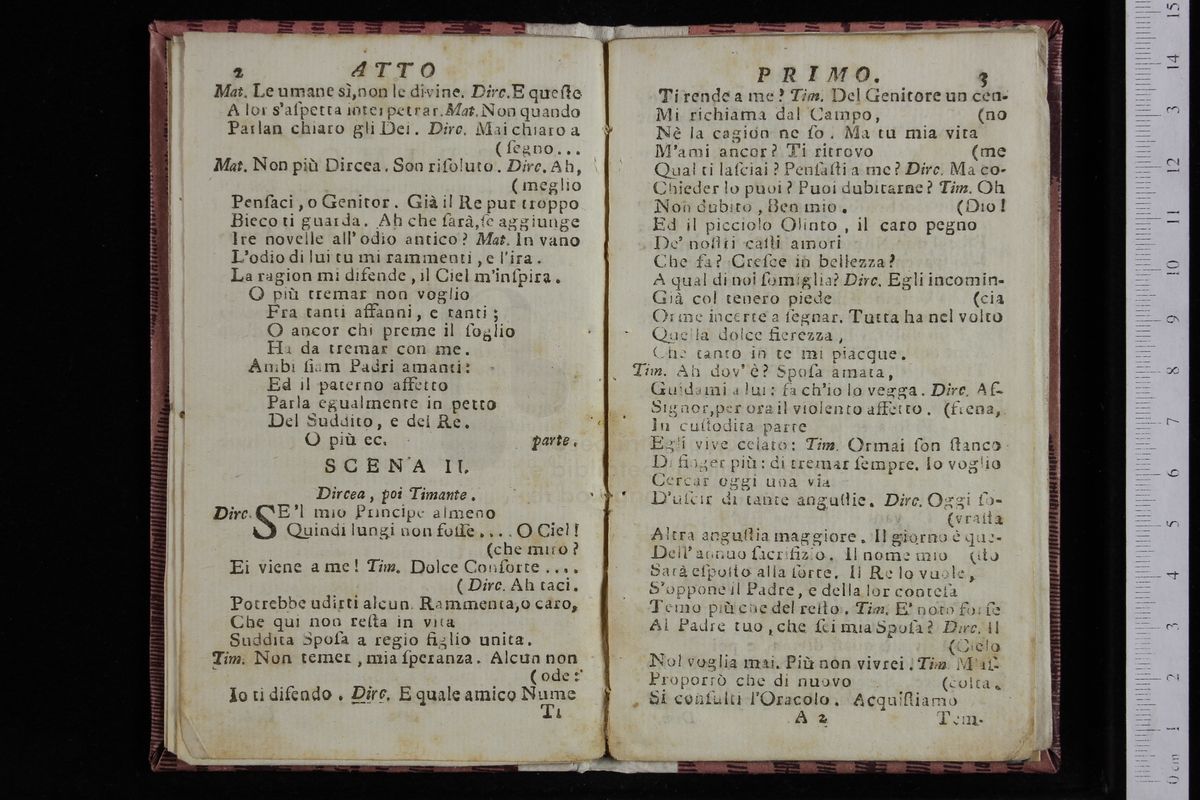 2 ATTO
Mat. Le umane sì, non le divine. Dirc. E queste
A lor s'aſpetta interpetrar. Mat. Non quando
Parlan chiaro gli Dei. Dirc. Mai chiaro a
(ſegno...
Mat. Non più Dircea. Son riſoluto. Dirc. Ah,
(meglio
Penſaci, o Genitor. Già il Re pur troppo
Bieco ti guarda. Ah che ſarà, ſe aggiunge
Ire novelle all' odio antico? Mat. In vano
L'odio di lui tu mi rammenti, e l'ira.
La ragion mi difende, il Ciel m'inſpira.
O più tremar non voglio
Fra tanti affanni, e tanti;
O ancor chi preme il ſoglio
Ha da tremar con me.
Ambi ſiam Padri amanti:
Ed il paterno affetto
Parla egualmente in petto
Del Suddito, e del Re.
O più ec. parte.
SCENA II.
Dircea, poi Timante.
Dirc. SE'l mio Principe almeno
Quindi lungi non foſſe.... O Ciel!
(che miro?
Ei viene a me! Tim. Dolce Conſorte....
(Dirc. Ah taci.
Potrebbe udirti alcun. Rammenta, o caro,
Che qui non reſta in vita
Suddita Spoſa a regio figlio unita.
Tim. Non temer, mia ſperanza. Alcun non
(ode:
Io ti difendo. Dirc. E quale amico Nume
Ti
PRIMO. 3
Ti rende a me? Tim. Del Genitore un cen-
Mi richiama dal Campo, (no
Nè la cagion ne ſo. Ma tu mia vita
M'ami ancor? Ti ritrovo (me
Qual ti laſciai? Penſaſti a me? Dirc. Ma co-
Chieder lo puoi? Puoi dubitarne? Tim. Oh
Non dubito, Ben mio. (Dio!
Ed il picciolo Olinto, il caro pegno
De' noſtri caſti amori
Che fa? Creſce in bellezza?
A qual di noi ſomiglia? Dirc. Egli incomin-
Già col tenero piede (cia
Orme incerte a ſegnar. Tutta ha nel volto
Quella dolce fierezza,
Che tanto in te mi piacque.
Tim. Ah dov' è? Spoſa amata,
Guidami a lui: fa ch'io lo vegga. Dirc. Aſ-
Signor, per ora il violento affetto. (frena,
In cuſtodita parte
Egli vive celato: Tim. Ormai ſon ſtanco
Di finger più: di tremar ſempre. Io voglio
Cercar oggi una via
D'uſcir di tante anguſtie. Dirc. Oggi ſo-
(vraſta
Altra anguſtia maggiore. Il giorno è que-
Dell' annuo ſacrifizio. Il nome mio (ſto
Sarà eſpoſto alla ſorte. Il Re lo vuole,
S'oppone il Padre, e della lor conteſa
Temo più che del reſto. Tim. E' noto forſe
Al Padre tuo, che ſei mia Spoſa? Dirc. Il
(Cielo
Nol voglia mai. Più non vivrei. Tim. M'aſ-
Proporrò che di nuovo (colta.
Si conſulti l'Oracolo. Acquiſtiamo
A 2 Tem-
0 cm 1 2 3 4 5 6 7 8 9 10 11 12 13 14 15